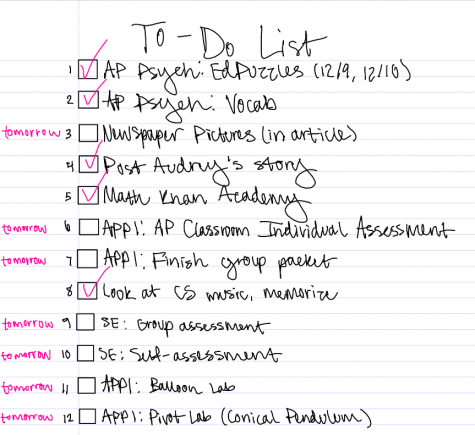 To-Do List
1 AP Psych: EdPuzzles (12/9, 12/10)
2 AP Psych: Vocab
tomorrow 3 Newspaper Pictures (in article)
4 Post Audrey's story
5 Math Khan Academy
tomorrow 6 APP1: AP Classroom Individual Assessment
tomorrow 7 APP1: Finish group packet
8 Look at CS music, memorize
tomorrow 9 SE: Group assessment
tomorrow 10 SE: Self-assessment
tomorrow 11 APP1: Balloon Lab
tomorrow 12 APP1: Pivot Lab (Conical Pendulum)